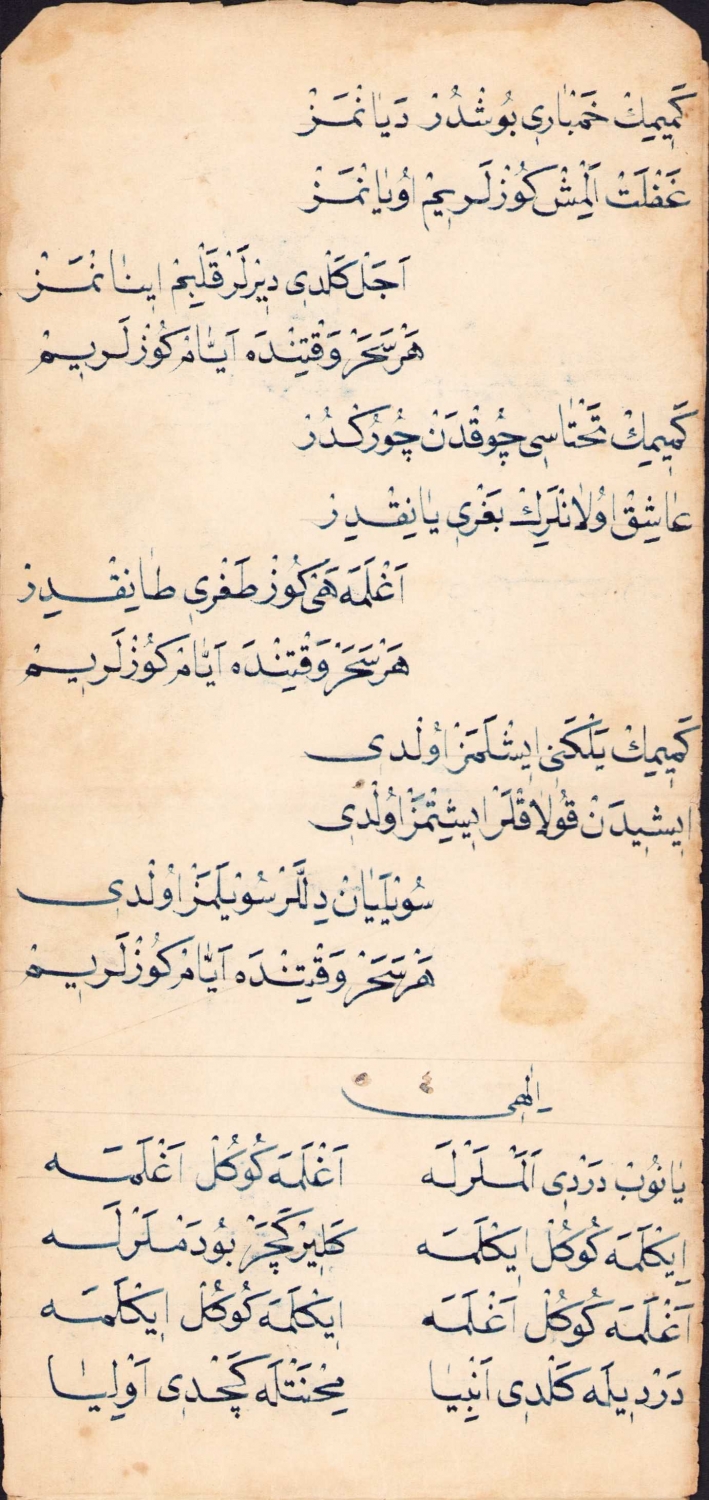 كَمِيمِكْ خَمْبَارِى بُوشْدُرْ دَيَانْمَزْ
غَفْلَتْ اَلْمِشْ كُوزْلَرِيمْ اُويَانْمَزْ
اَجَلْ كَلْدِى دِيرْلَرْ قَلْبِمْ اِينَانْمَزْ
هَرْ سَحَرْ وَقْتِنْدَه آيَّامْ كُوزْلَرِيمْ
كَمِيمِكْ تَخْتَاسِى چُوقْدَنْ چُورُكْدُرْ
عَاشِقْ اُولَانْلَرِكْ بَغْرِى يَانِقْدِرْ
اَغْلَمَه هَىْ كُوزْ طَغْرِى طَانِقْدِرْ
هَرْ سَحَرْ وَقْتِنْدَه آيَّامْ كُوزْلَرِيمْ
كَمِيمِكْ يَلْكَنِى اِيشْلَمَزْ اُولْدِى
اِيشِيدَنْ قُولَاقْلَرْ اِيشِتْمَزْ اُولْدِى
سُويْلَيَانْ دِلَّرْ سُويْلَمَزْ اُولْدِى
هَرْ سَحَرْ وَقْتِنْدَه آيَّامْ كُوزْلَرِيمْ
اِلٰهِى
يَانُوبْ دَرْدِى اَلَمْلَرْلَه اَغْلَمَه كُوكُلْ اَغْلَمَه
اِيكْلَمَه كُوكُلْ اِيكْلَمَه كَلِيرْ كَچَرْ بُو دَمْلَرْلَه
اَغْلَمَه كُوكُلْ اَغْلَمَه اِيكْلَمَه كُوكُلْ اِيكْلَمَه
دَرْدِيلَه كَلْدِى اَنْبِيَا مِحْنَتْلَه كَچْدِى اَوْلِيَا